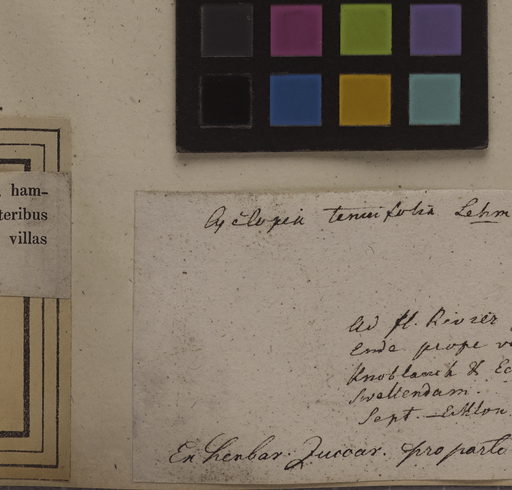 ham-
teribus
villas
Cyclopia tenuifolia Lehm
Ad fl. Rivier
Ende prope
Knoblauch & Ec
Swellendam.
Sept. - Ecklon.
Ex herbar. Zuccar. pro parte